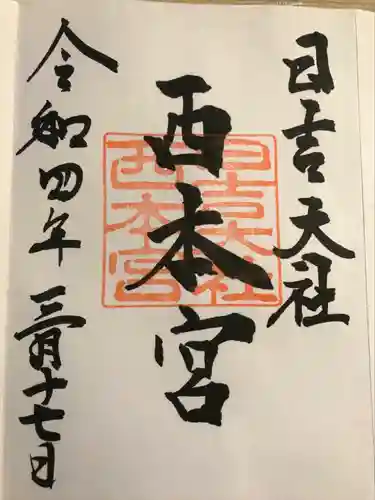 日吉大社
西本宮
日吉大社
西本宮
令和四年三月十七日